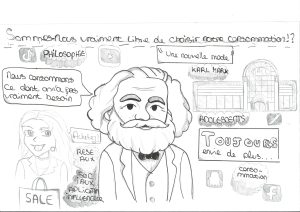 Sommes-Nous vraiment libre de choisir notre consommation!?
PHILOSOPHIE
"Une nouvelle mode"
KARL MARX
Nous consommons
ce dont on n'a pas
vraiment besoin
ADOLESCENTS
TOUJOURS
envie de plus...
Acheter
RESE
AUX
conso-
mmation
SALE